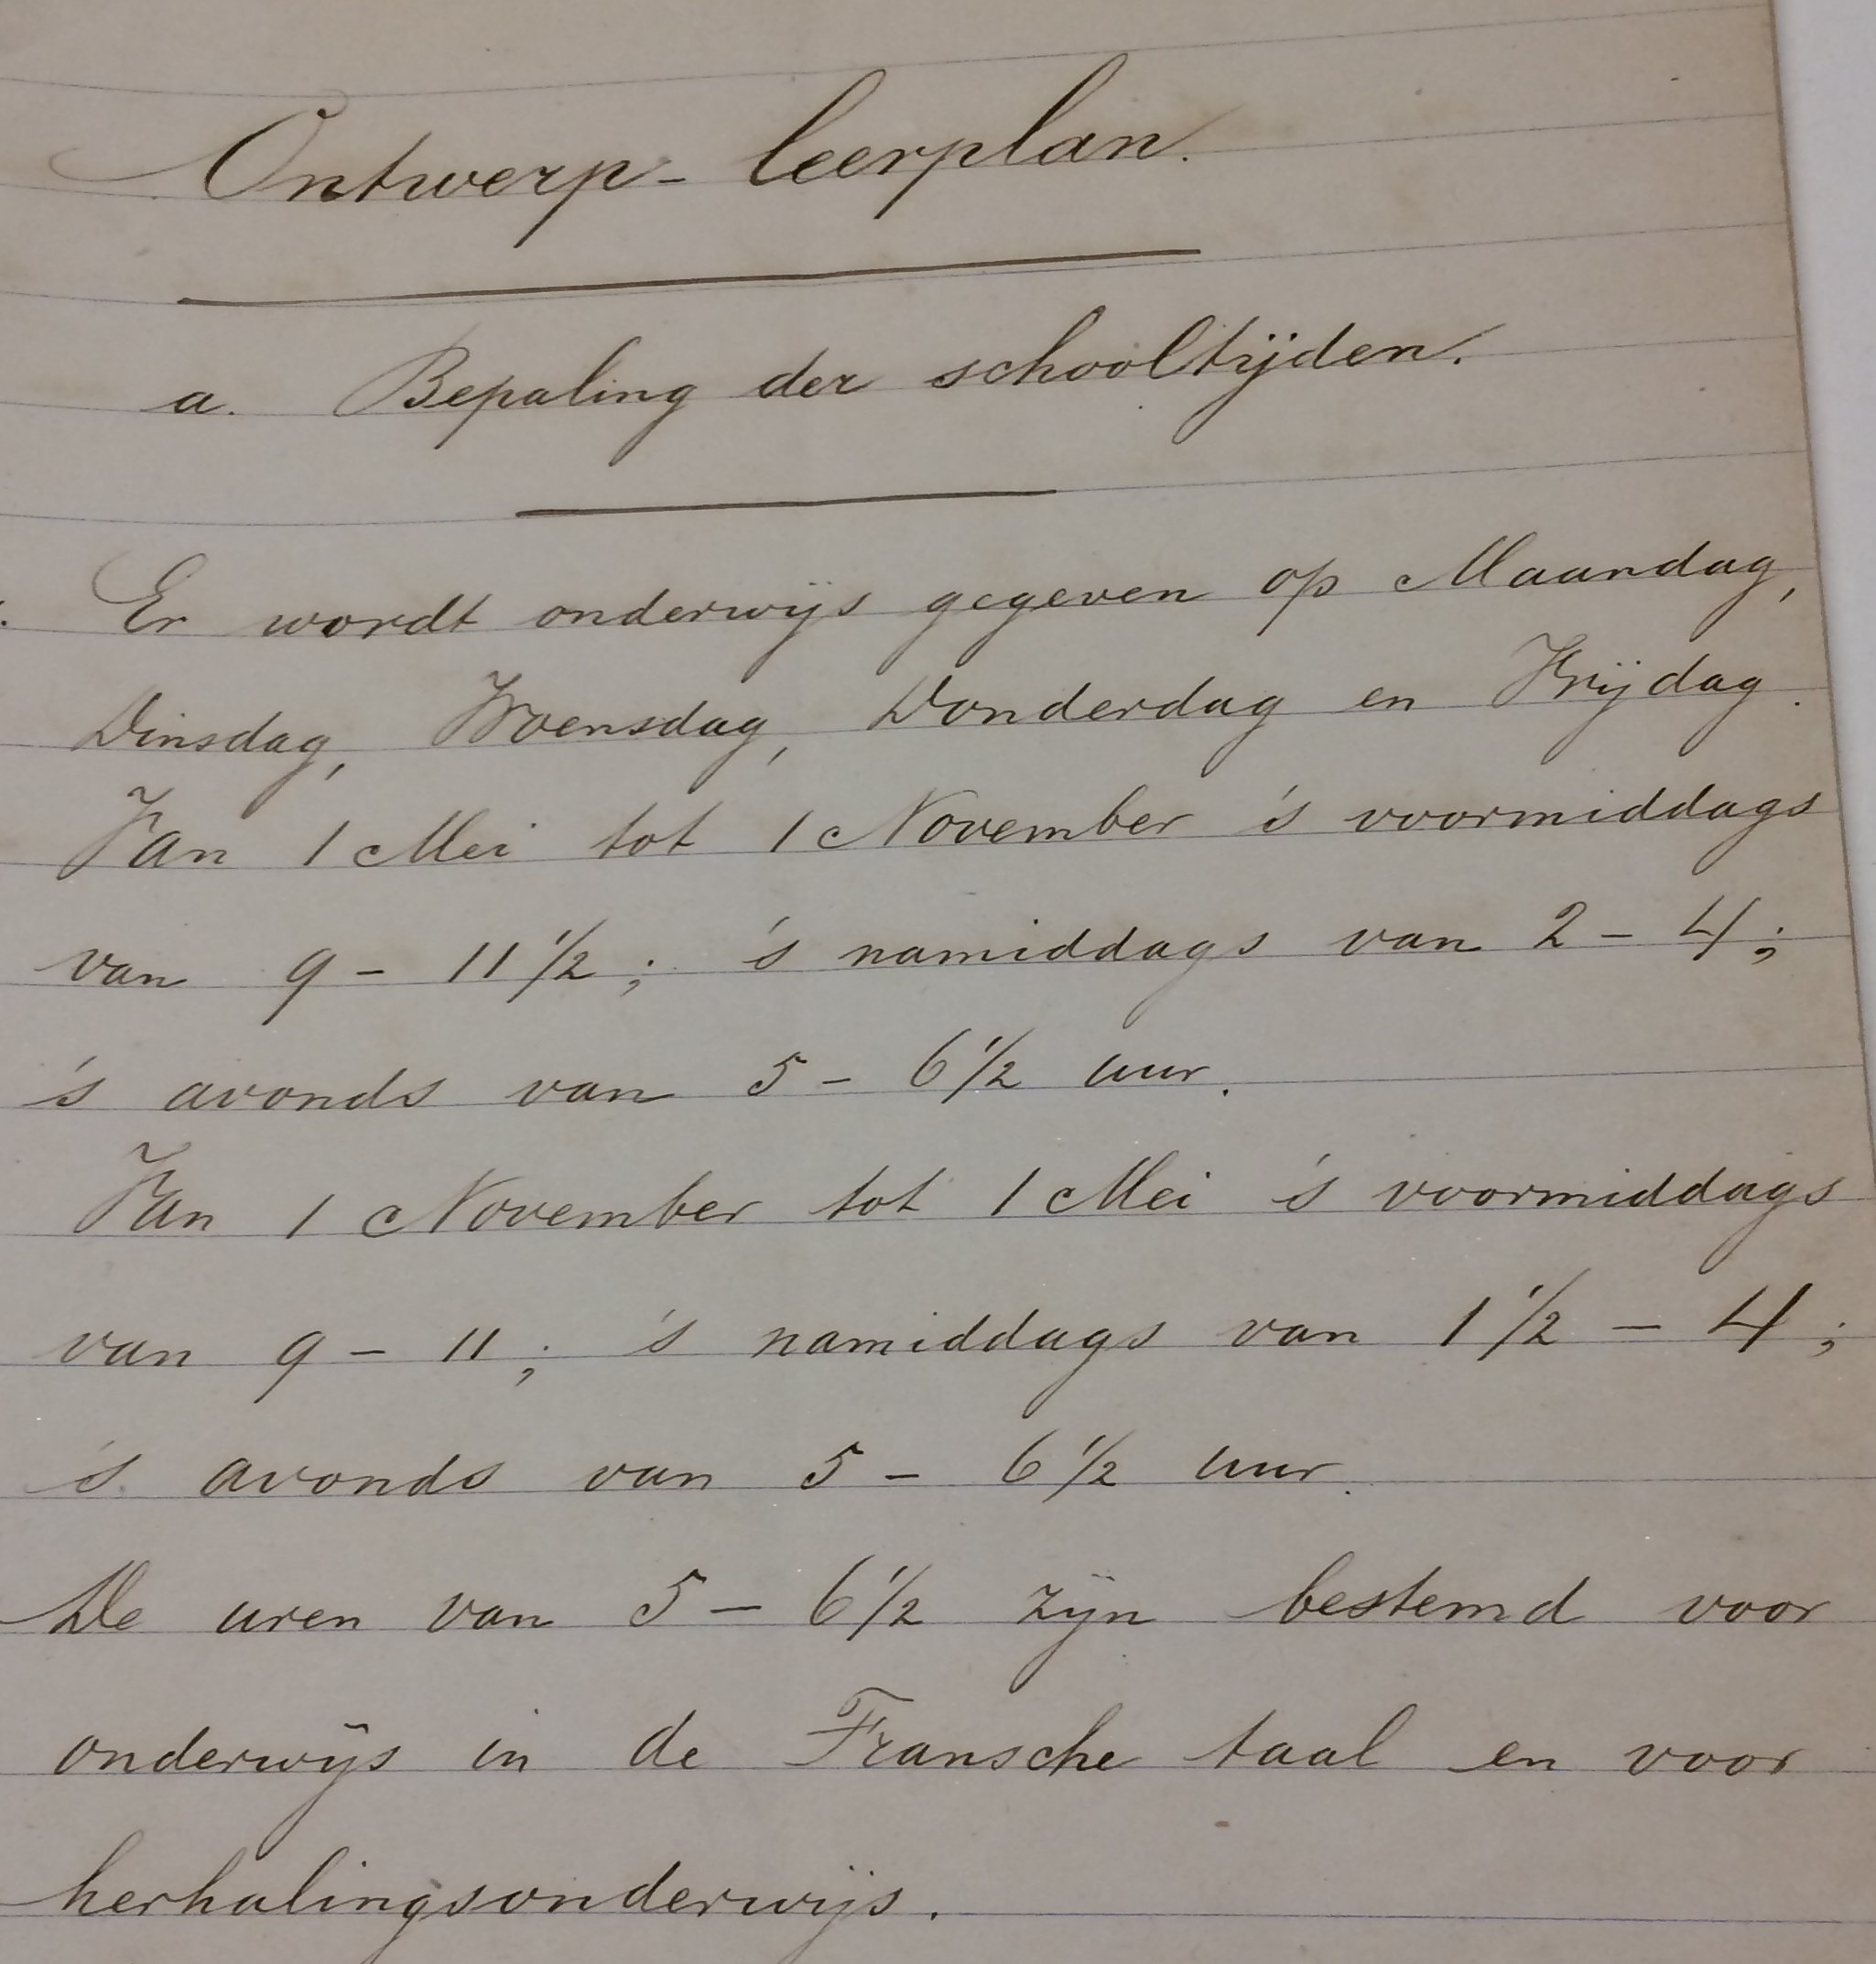 Ontwerp- leerplan.
a. Bepaling der schooltijden.
Er wordt onderwijs gegeven op Maandag,
Dinsdag, Woensdag, Donderdag en Vrijdag.
Van 1 Mei tot 1 November 's voormiddags
van 9 - 11 1/2; 's namiddags van 2 - 4;
's avonds van 5 - 6 1/2 uur.
Van 1 November tot 1 Mei 's voormiddags
van 9 - 11; 's namiddags van 1 1/2 - 4;
's avonds van 5 - 6 1/2 uur.
De uren van 5 - 6 1/2 zijn bestemd voor
onderwijs in de Fransche taal en voor
herhalingsonderwijs.